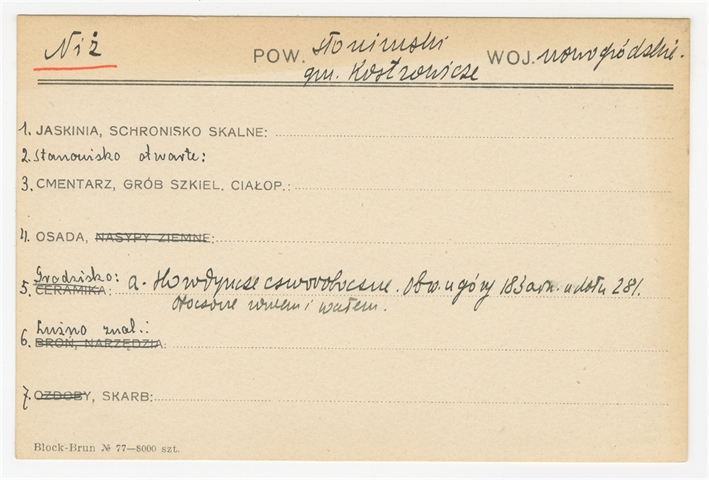 Niż POW. słonimski WOJ. nowogródzkie.
gm. Kostrowicze
1. JASKINIA, SCHRONISKO SKALNE:
2. Stanowisko otwarte:
3. CMENTARZ, GRÓB SZKIEL. CIAŁOP.:
4. OSADA, NASYPY ZIEMNE:
Grodzisko: a. Horodyszcze czworoboczne. Obw. u góry 183 u dołu 281.
5. CERAMIKA: otoczone rowem i wałem.
Luźno znal.:
6. BROŃ, NARZĘDZIA:
7. OZDOBY, SKARB:
Block-Brun № 77—8000 szt.